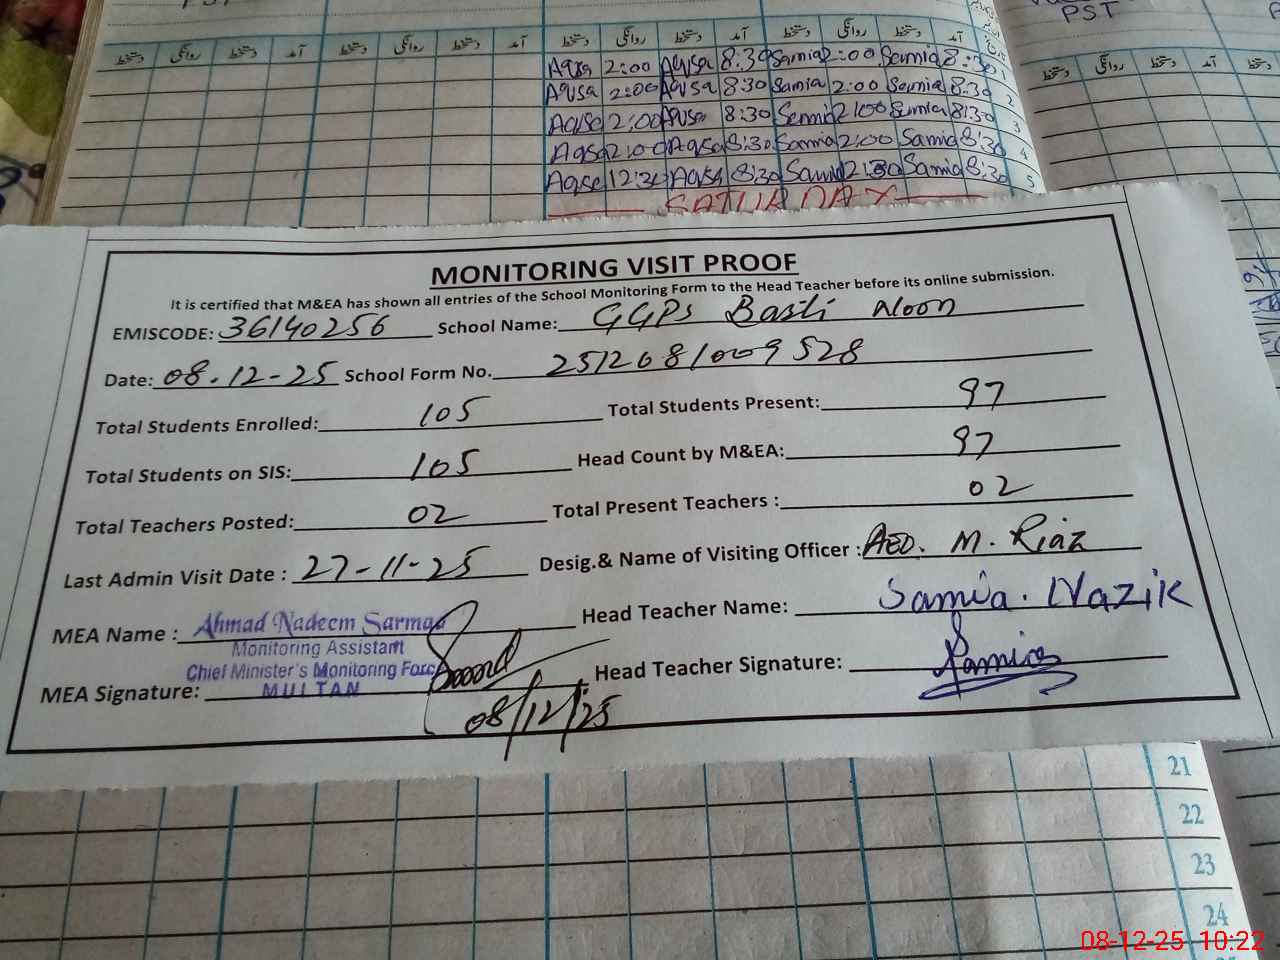 PST
دستخط روانگی دستخط آمد دستخط روانگی دستخط آمد دستخط روانگی دستخط آمد دستخط روانگی دستخط آمد
دستخط روانگی دستخط آمد
Aqsa 2:00 Aqsa 8:30 Samia 2:00 Samia 8:30 1
Aqsa 2:00 Aqsa 8:30 Samia 2:00 Samia 8:30 2
Aqsa 2:00 Aqsa 8:30 Samia 2:00 Samia 8:30 3
Aqsa 2:00 Aqsa 8:30 Samia 2:00 Samia 8:30 4
Aqsa 12:30 Aqsa 8:30 Samia 2:30 Samia 8:30 5
SATUADAY
MONITORING VISIT PROOF
It is certified that M&EA has shown all entries of the School Monitoring Form to the Head Teacher before its online submission.
EMISCODE: 36140256 School Name: GGPS Basti Noon
Date: 08.12-25 School Form No. 2512081009528
Total Students Enrolled: 105 Total Students Present: 97
Total Students on SIS: 105 Head Count by M&EA: 97
Total Teachers Posted: 02 Total Present Teachers : 02
Last Admin Visit Date : 27-11-25 Desig.& Name of Visiting Officer : AEO. M. Riaz
MEA Name : Ahmad Nadeem Sarmad Head Teacher Name: Samia. Nazik
Monitoring Assistant
Chief Minister's Monitoring Force
MEA Signature: MULTAN Head Teacher Signature: Samia
08/12/25
21
22
23
24
08-12-25 10:22